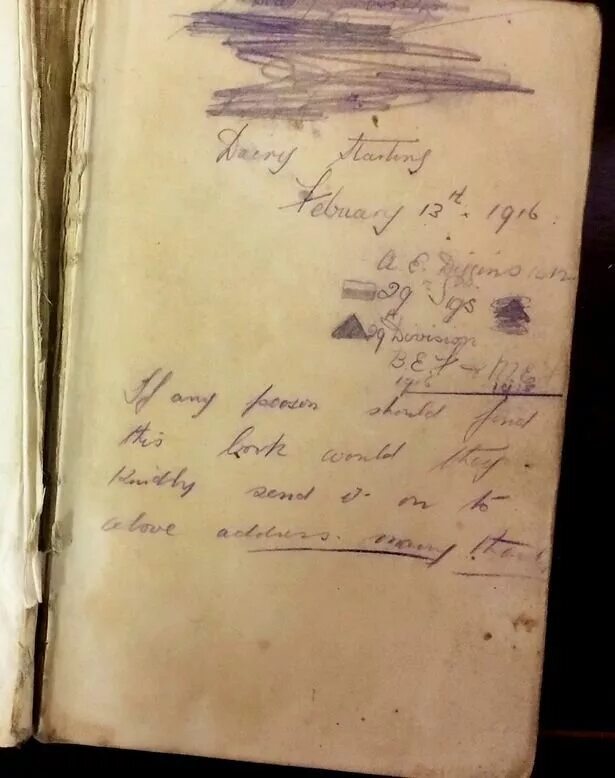 Dairy Starting
Febuary 13th. 1916
A. E. Diggins
29 Sigs
29th Division
B.E.F M.E.F
1916 1915
If any person should find
this book would they
Kindly send it on to
above address. many thanks